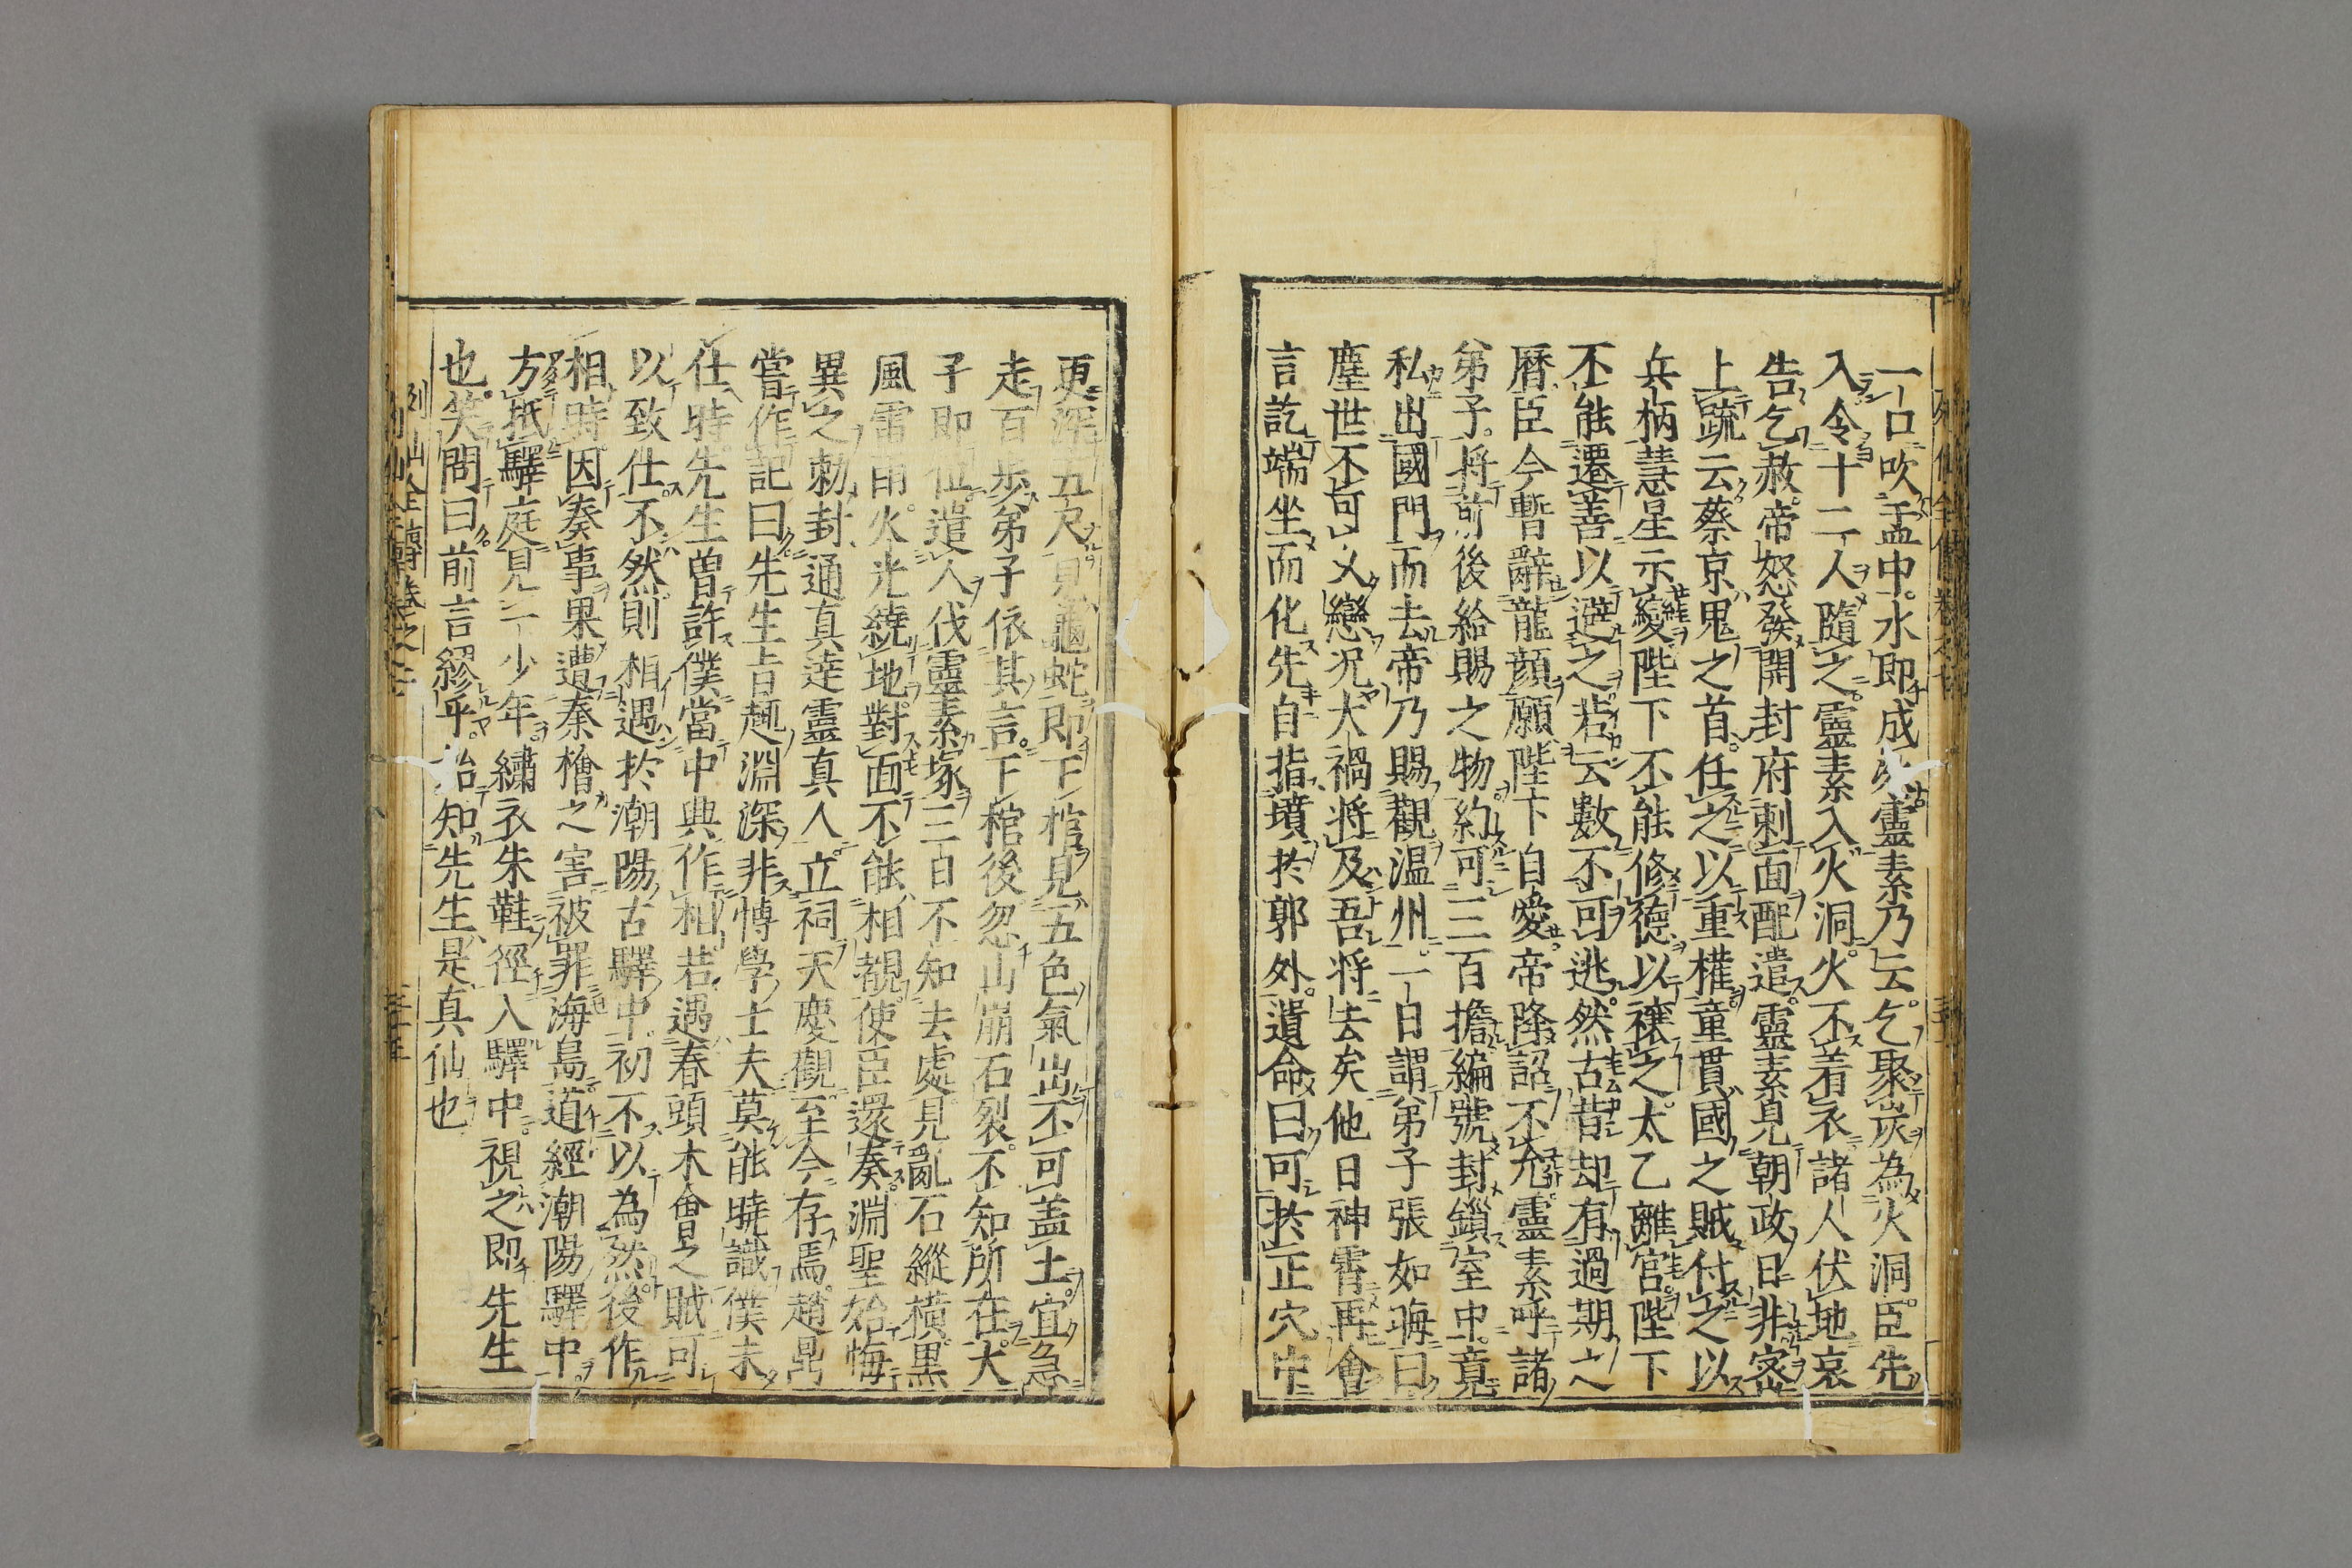 一口吹盂中水即成靈素乃云乞聚炭為火洞臣先
入令十二人隨之靈素入火洞火不着衣諸人伏地哀
告乞赦帝怒發開封府刺面配遣靈素見朝政日非密
上疏云蔡京鬼之首任之以重權童貫國之賊付之以
兵柄慧星示變陛下不能修德以禳之太乙離宮陛下
不能遷善以避之若云數不可逃然古昔却有過期之
曆臣今暫辭龍顔願陛下自愛帝降詔不允靈素呼諸
弟子將前後給賜之物約可三百擔編號封鎖室中竟
私出國門而去帝乃賜觀温州一日謂弟子張如晦曰
塵世不可久戀况大禍將及吾將去矣他日神霄再會
言訖端坐而化先自指墳於郭外遺命曰可於正穴中
更深五尺見龜蛇即下棺見五色氣出不可盖土宜急
走百步弟子依其言下棺後忽山崩石裂不知所在太
子即位遣人伐靈素塚三日不知去處見亂石縱橫黒
風雷雨火光繞地對面不能相覩使臣還奏淵聖始悔
異之勅封通真達靈真人立祠天慶觀至今存焉趙鼎
嘗作記曰先生旨趣淵深非博學士夫莫能曉識僕未
仕時先生曾許僕當中興作相若遇春頭木會之賊可
以致仕不然則相遇於潮陽古驛中初不以為然後作
相時因奏事果遭秦檜之害被罪海島道經潮陽驛中
方抵驛庭見一少年繡衣朱鞋徑入驛中視之即先生
也笑問曰前言繆乎始知先生是真仙也